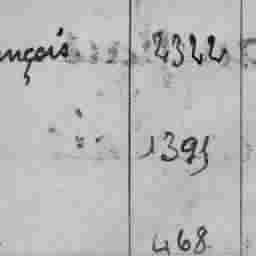 ançois 2322
1395
468